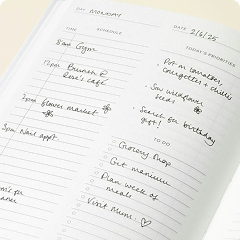 DAY MONDAY
DATE 2/6/25
TIME SCHEDULE
TODAY'S PRIORITIES
8am Gym
• Pot on tomatoes,
courgettes + chillis
12pm Brunch @
Rose's cafe
• Sow wildflower
seeds
3pm flower market
• Search for birthday
gift!
5pm Nail appt
TO DO
Grocery shop
Get manicure
Plan week of
meals
Visit Mum